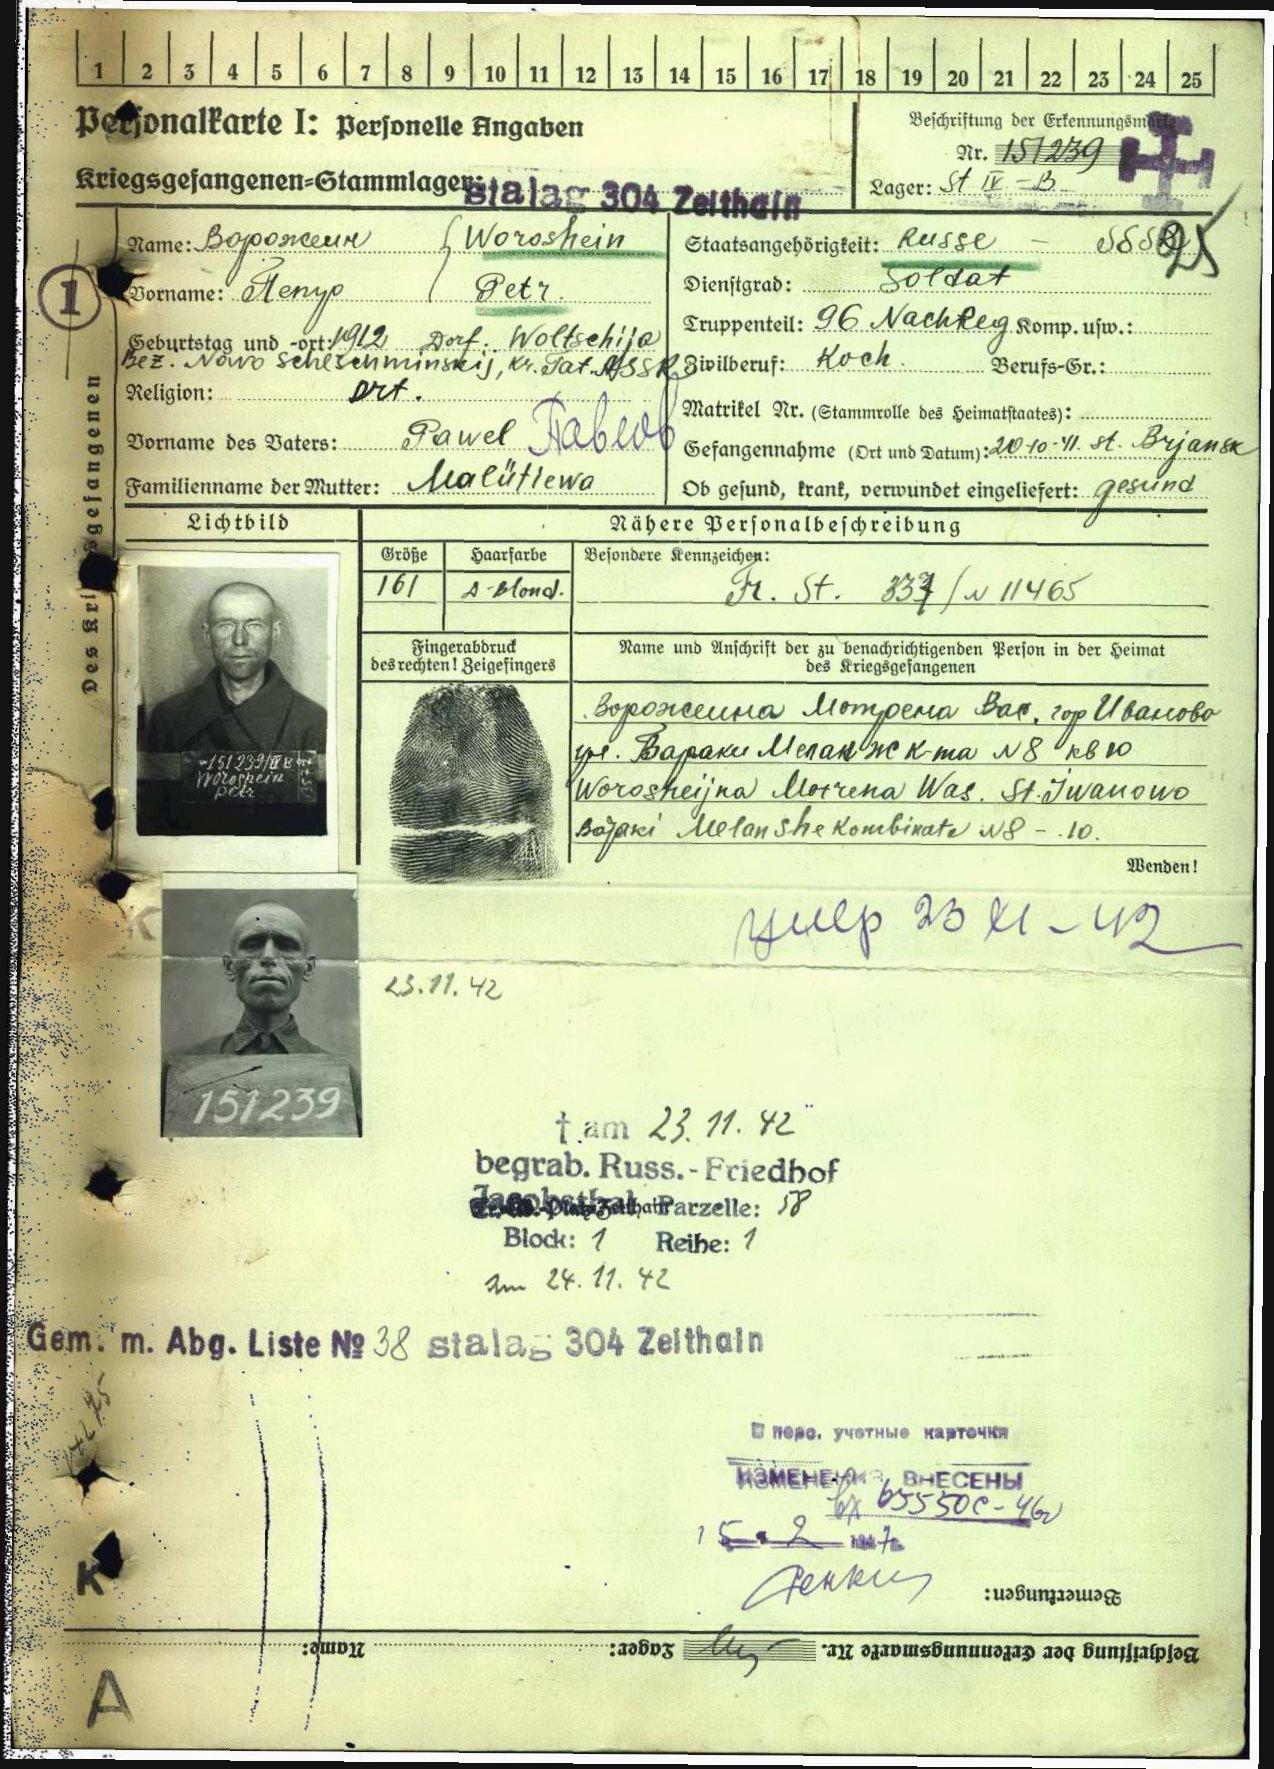 1 2 3 4 5 6 7 8 9 10 11 12 13 14 15 16 17 18 19 20 21 22 23 24 25
Personalkarte I: Personelle Angaben
Kriegsgefangenen=Stammlager: Stalag 304 Zeithain
Beschriftung der Erkennungsmarke
Nr. 151239
Lager: St IV-B
Des Kriegsgefangenen
1
Name: Ворожеин Woroshein
Vorname: Петр Petr.
Geburtstag und -ort: 1912 Dorf. Woltschija
Bez. Nowo Scheschminskij, Kr. Tat. ASSR
Religion: ort.
Vorname des Vaters: Pawel Павел
Familienname der Mutter: Malütiewa
Staatsangehörigkeit: Russe - SSSR
25
Dienstgrad: Soldat
Truppenteil: 96 NachReg Komp. usw.:
Zivilberuf: Koch. Berufs-Gr.:
Matrikel Nr. (Stammrolle des Heimatstaates):
Gefangennahme (Ort und Datum): 20-10-41. st. Brjansk
Ob gesund, krank, verwundet eingeliefert: gesund
Lichtbild
Nähere Personalbeschreibung
Größe Haarfarbe Besondere Kennzeichen:
161 d-blond. Fr. St. 337/N 11465
Fingerabdruck
des rechten! Zeigefingers
Name und Anschrift der zu benachrichtigenden Person in der Heimat
des Kriegsgefangenen
Ворожеина Мотрена Вас. гор Иваново
ул. Бараки Меланж К-та N8 кв 10
Worosheijna Motrena Was. St. Iwanowo
Baraki Melanshe Kombinate N8 - 10.
Wenden!
151239/IV B
Woroshein
Petr
умер 23 XI - 42
23.11.42
151239
† am 23.11.42
begrab. Russ.-Friedhof
Jacobsthal Parzelle: 58
Block: 1 Reihe: 1
am 24.11.42
Gem. m. Abg. Liste № 38 Stalag 304 Zeithain
В перс. учетные карточки
ИЗМЕНЕНИЯ ВНЕСЕНЫ
вх 65550с-46г
15 2 1947г.
Bemerkungen:
K
Beschriftung der Erkennungsmarke Nr. Lager: Name:
A